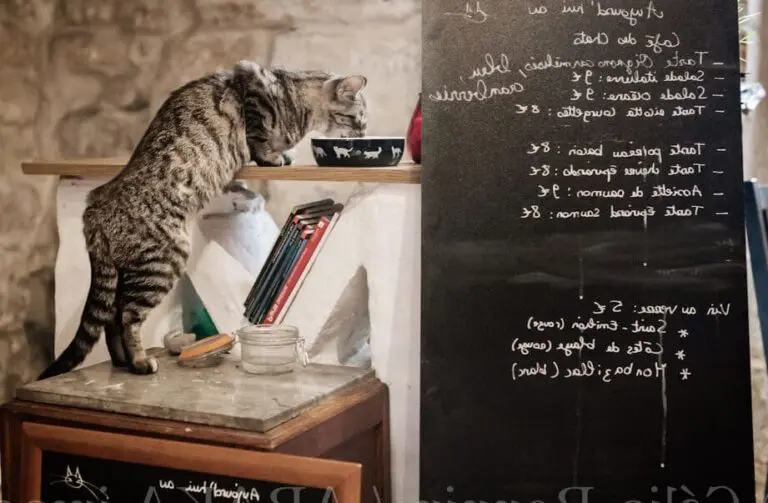 Aujourd'hui au
Café des Chats
- Tarte Oignons caramélisés, bleu,
cranberrie
- Salade italienne : 9€
- Salade Océane : 9€
- Tarte ricotta courgettes : 8€
- Tarte poireau bacon : 8€
- Tarte chèvre épinards : 8€
- Assiette de saumon : 9€
- Tarte Epinard Saumon : 8€
Vin au verre : 5€
* Saint-Emilion (rouge)
* Côtes de blaye (rouge)
* Monbazillac (blanc)
Aujourd'hui au